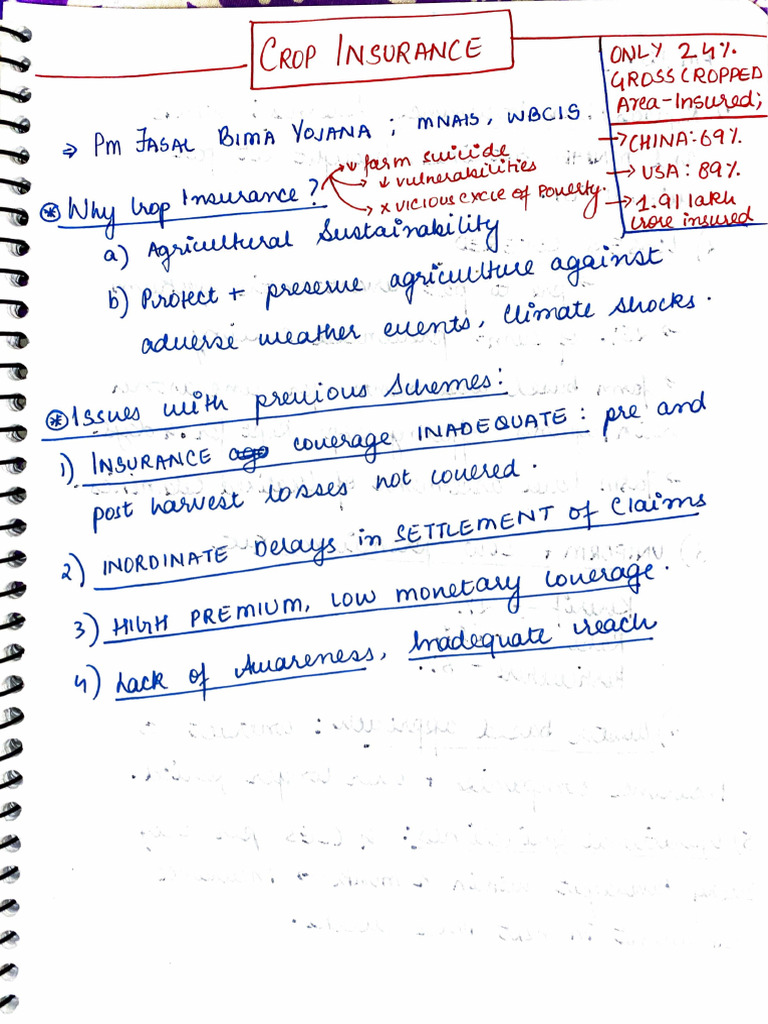 CROP INSURANCE
ONLY 24%
GROSS CROPPED
Area-Insured;
→ CHINA: 69%
→ USA: 89%
→ 1.91 lakh
crore insured
⇒ Pm FASAL BIMA YOJANA ; MNAIS, WBCIS.
* Why Crop Insurance?
→ ↓ farm suicide
→ ↓ vulnerabilities
→ x vicious cycle of Poverty.
a) Agricultural Sustainability
b) Protect + preserve agriculture against
adverse weather events, Climate shocks.
* Issues with previous Schemes:
1) INSURANCE coverage INADEQUATE: pre and
post harvest losses not covered.
2) INORDINATE Delays in SETTLEMENT of Claims
3) HIGH PREMIUM, LOW monetary coverage.
4) Lack of Awareness, Inadequate reach